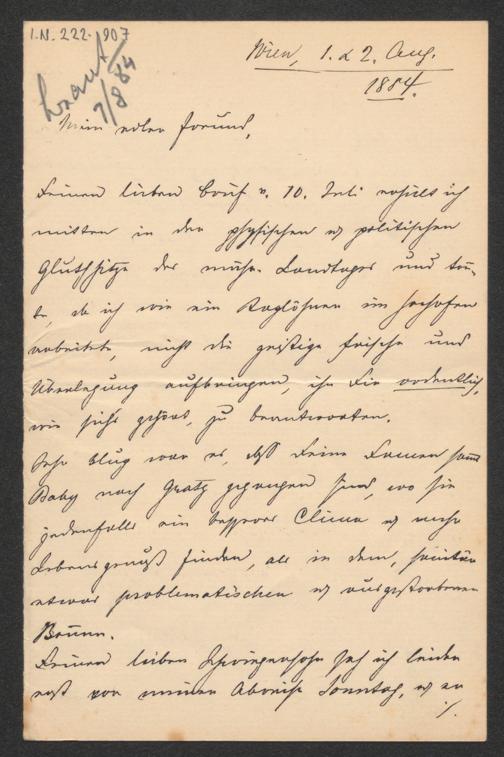 I.N. 222.907
Wien, 1. & 2. Aug.
1884.
7/8 84
Mein edler Freund,
Deinen lieben Brief v. 10. Juli erhielt ich
mitten in der physischen u politischen
Gluthhitze des mähr. Landtages und
da ich wie ein Taglöhner im Hochofen
arbeitete, nicht die geistige Frische und
Überlegung aufbringen, ihn Dir ordentlich,
wie sichs gehört, zu beantworten.
Sehr klug war es, daß Deine Damen sammt
Baby nach Gratz gegangen sind, wo sie
jedenfalls ein besseres Clima u mehr
Lebensgenuß finden, als in dem, sanitär
etwas problematischen u ausgestorbenen
Brünn.
Deinen lieben Schwiegersohn sah ich leider
erst vor meiner Abreise Sonntag, u er
./.